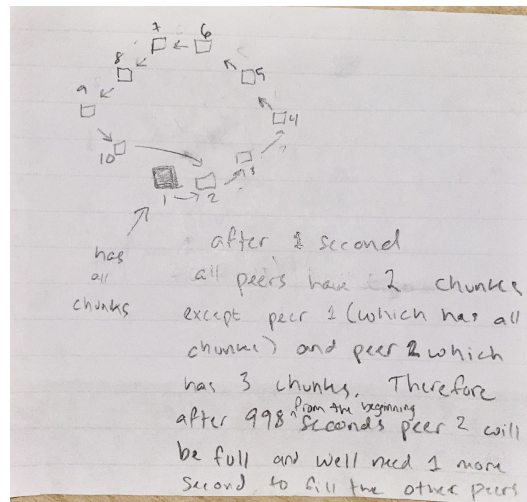 7 6
8
5
9
4
10
3
1 2
has
all
chunks
after 1 second
all peers have 2 chunks
except peer 1 (which has all
chunks) and peer 2 which
has 3 chunks. Therefore
from the beginning
after 998 seconds peer 2 will
be full and well need 1 more
second to fill the other peers